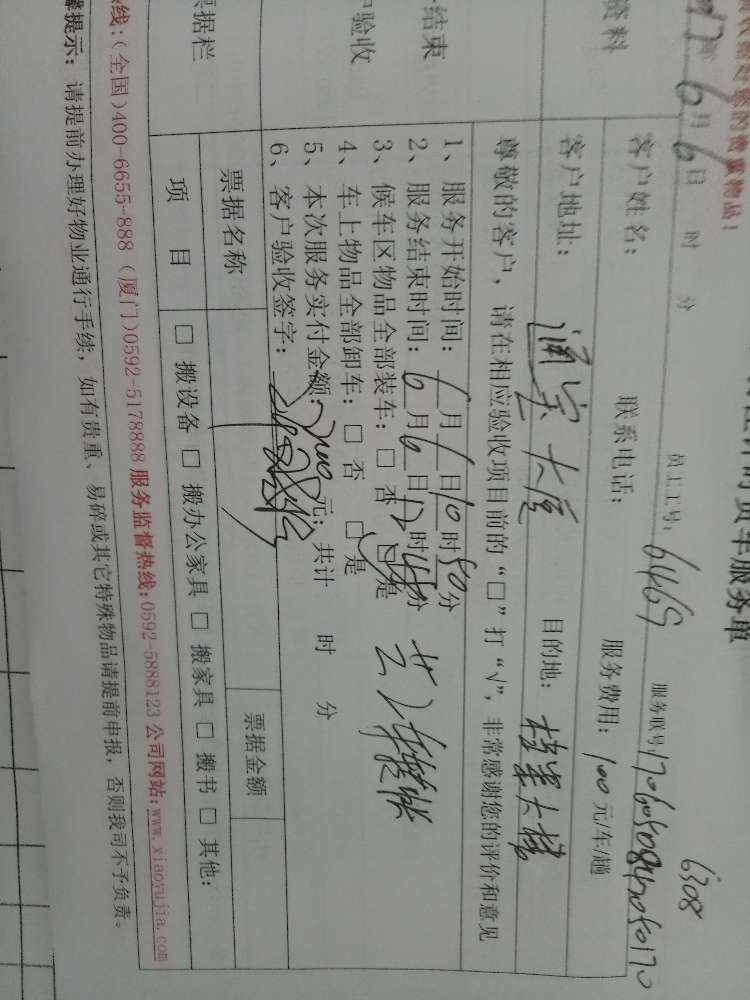 收好您的贵重物品！
的货车服务单
6308
17年6月6日 时 分 员工工号：6469 服务联号
资料
客户姓名： 联系电话： 服务费用：100元/车/趟
客户地址：通宝大厦 目的地：
尊敬的客户，请在相应验收项目前的“□”打“√”，非常感谢您的评价和意见
结束
户验收
1、服务开始时间：6月6日10时50分
2、服务结束时间：6月6日12时45分
3、候车区物品全部装车：□ 否 □ 是
4、车上物品全部卸车：□ 否 □ 是
5、本次服务实付金额： 元；共计 时 分
6、客户验收签字：
票据栏
票据名称 票据金额
项 目 □ 搬设备 □ 搬办公家具 □ 搬家具 □ 搬书 □ 其他：
热线：(全国)400-6655-888 (厦门)0592-5178888 服务监督热线：0592-5888123 公司网站：www.xiaoyujia.com
馨提示：请提前办理好物业通行手续，如有贵重、易碎或其它特殊物品请提前申报，否则我司不予负责。